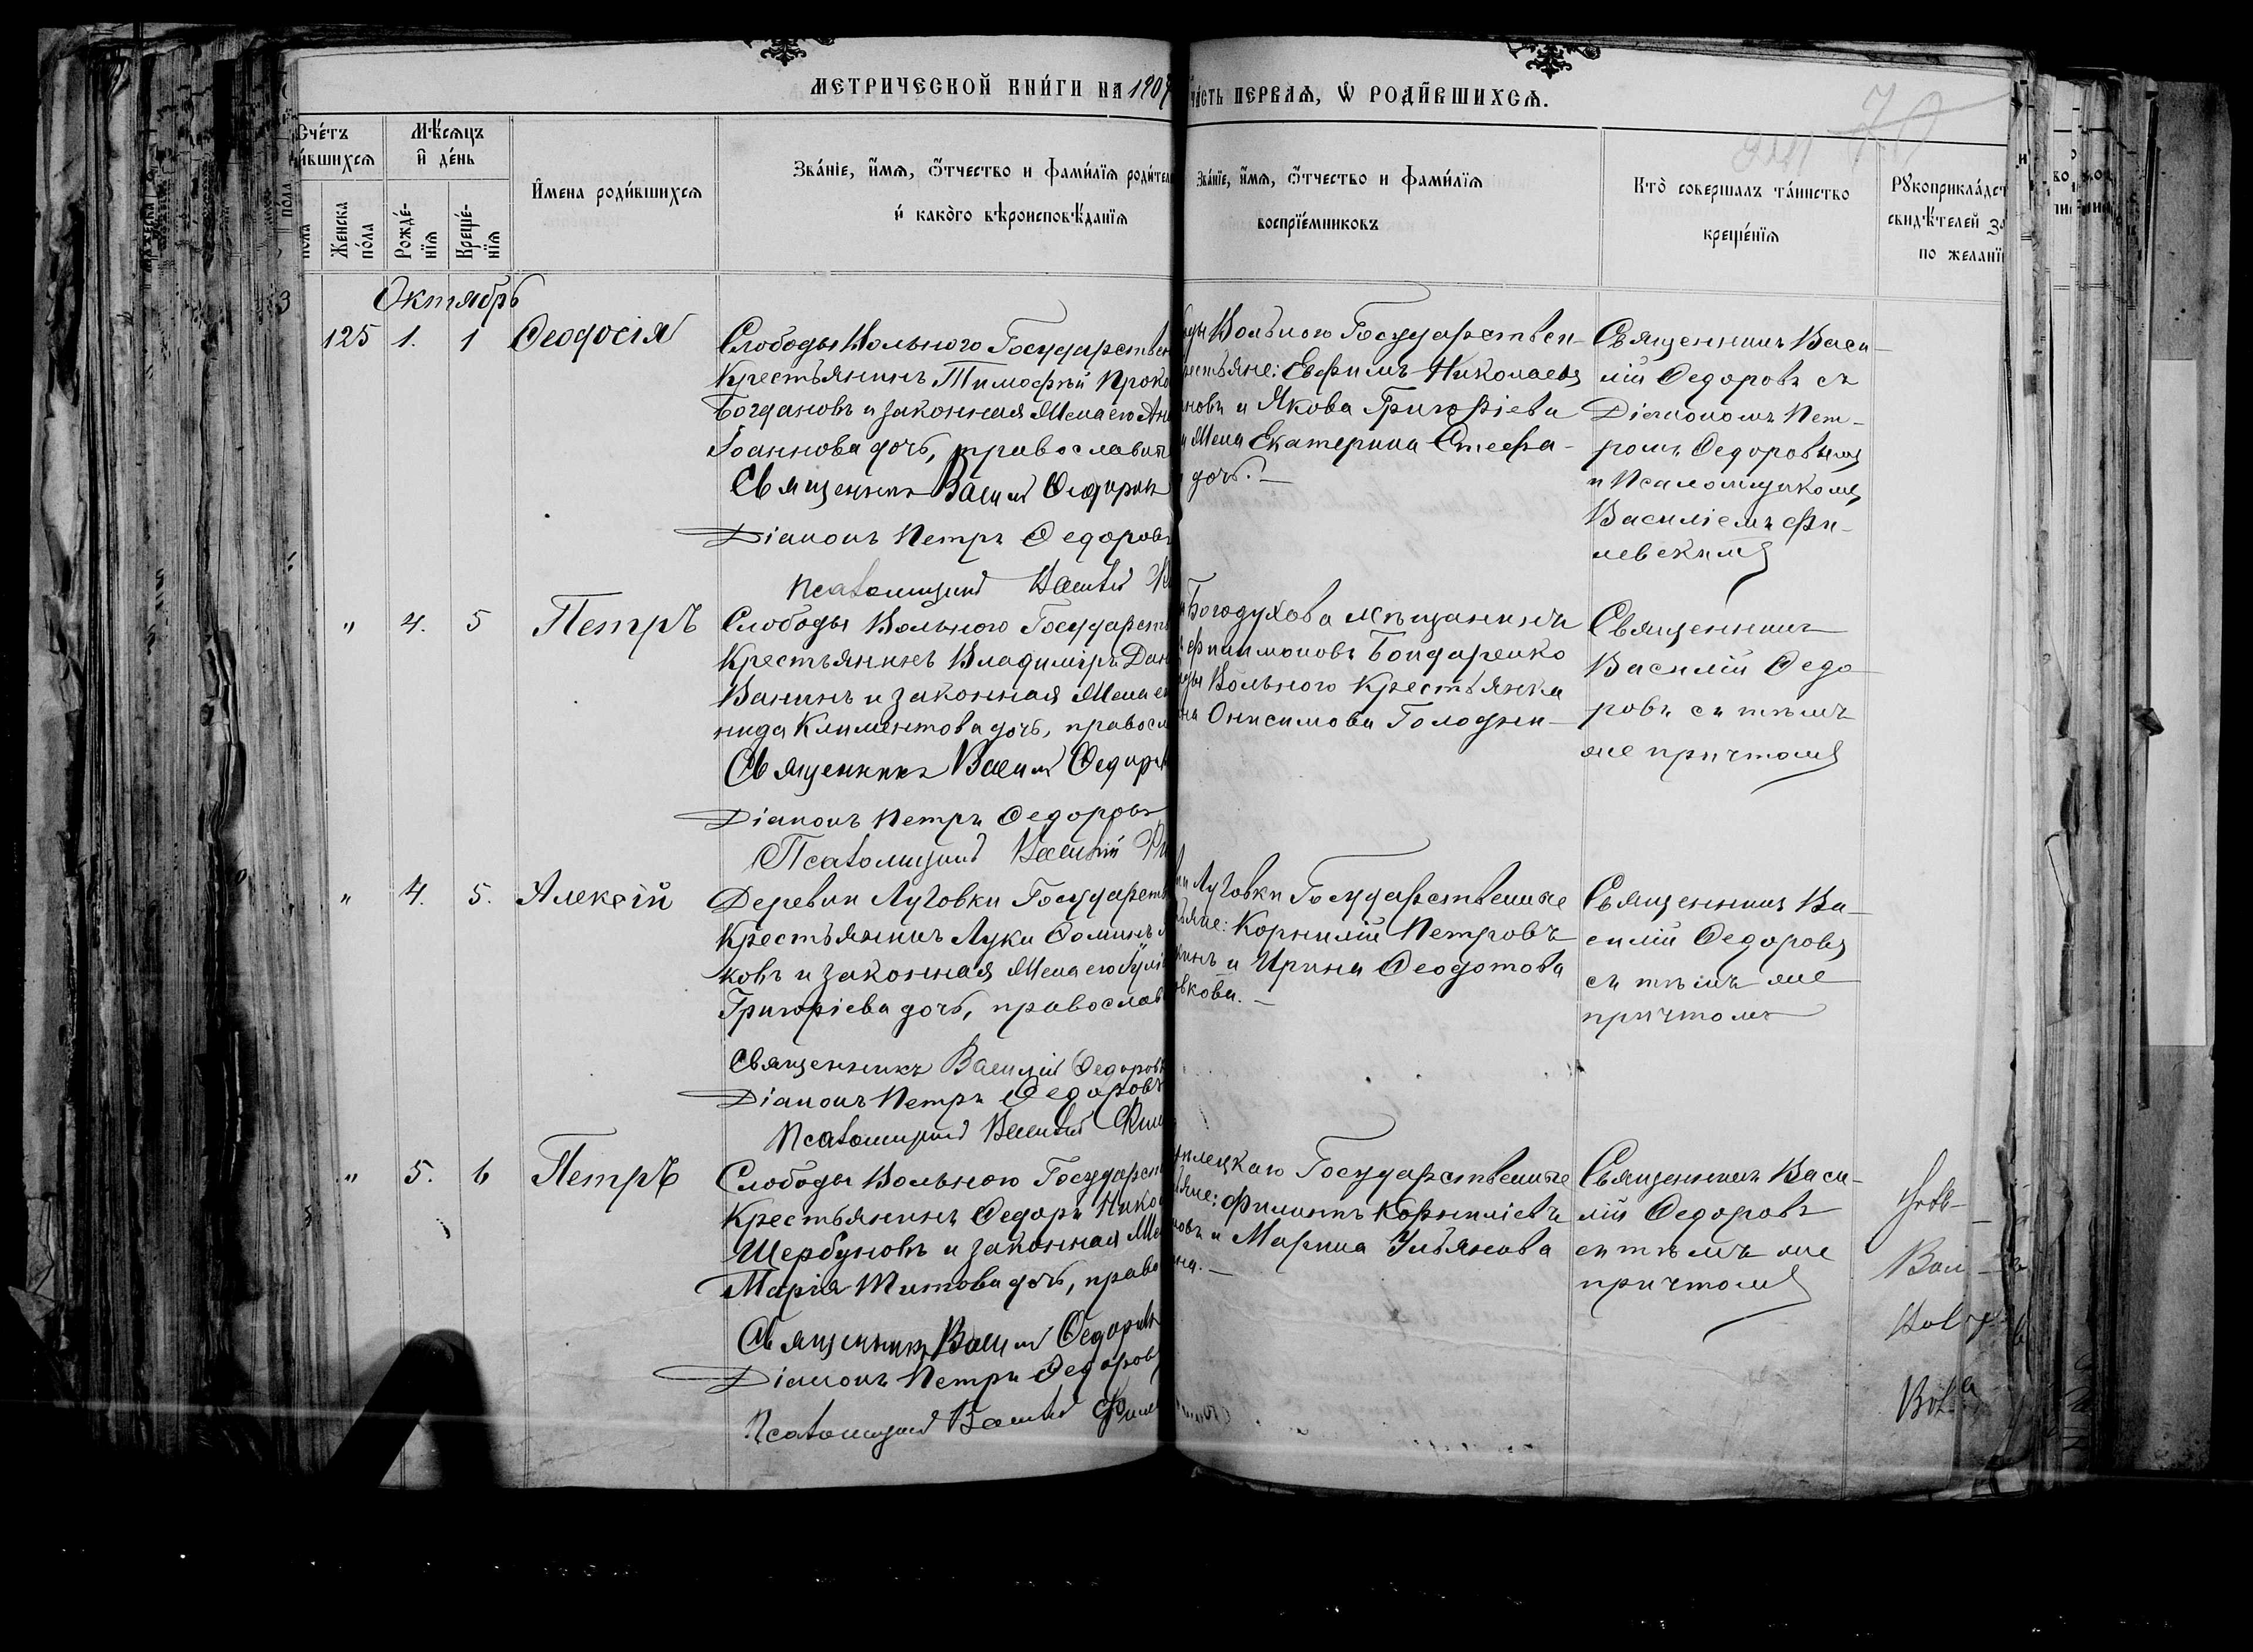 МЕТРИЧЕСКОЙ КНИ́ГИ НА 1907
ЧА́СТЬ ПЕРВАЯ, Ѡ РОДИ́ВШИХСЯ.
Сче́тъ
и́вшихся
Мѣ́сяцъ
и҆ де́нь
Женска по́ла
Рожде́-нїя
Креще́-нїя
И҆мена роди́вшихся
Зва́нїе, и҆́мя, ѻ҆́тчество и фами́лїя роди́тел
и҆ како́го вѣроисповѣ́данїя
Зва́нїе, и҆́мя, ѻ҆́тчество и фами́лїя
воспрїе́мниковъ
Кто̀ совершалъ та́инство
креще́нїя
Рꙋкоприкла́дст
свидѣ́телей за
по желанї
70
Октябрь
125 1. 1 Ѳеодосія
Слободы Вольного Государствен
Крестьянинъ Тимофѣй Проко
Богдановъ и законная жена его Ан
Іоаннова дочь, православн
Священникъ Василій Ѳедоровъ
Діаконъ Петръ Ѳедоровъ
Псаломщикъ Василій
оды Вольного Государствен-
рестьяне: Евфимъ Николаевъ
ановъ и Якова Григоріева
жена Екатерина Стефа-
дочь. —
Священникъ Васи-
лій Ѳедоровъ съ
Діакономъ Пет-
ромъ Ѳедоровымъ
и Псаломщикомъ
Василіемъ Фи-
левскимъ
" 4. 5 Петръ
Слободы Вольного Государств
Крестьянинъ Владиміръ Дан
Ванинъ и законная жена ег
нида Климентова дочь, правосл
Священникъ Василій Ѳедоров
Діаконъ Петръ Ѳедоровъ
Псаломщикъ Василій Фи
Богодухова мѣщанинъ
Филимоновъ Бондаренко
оды Вольного Крестьянка
на Онисимова Голодни-
Священникъ
Василій Ѳедо-
ровъ съ тѣмъ
же причтомъ
" 4. 5. Алексій
Деревни Луговки Государств
Крестьянинъ Лука Ѳоминъ
ковъ и законная жена его Іулі
Григоріева дочь, православ
Священникъ Василій Ѳедоровъ
Діаконъ Петръ Ѳедоровъ
Псаломщикъ Василій Фил
ни Луговки Государственные
ьяне: Корнилій Петровъ
кинъ и Ирина Ѳеодотова
овкова. —
Священникъ Ва-
силій Ѳедоровъ
съ тѣмъ же
причтомъ
" 5. 6 Петръ
Слободы Вольного Государств
Крестьянинъ Ѳедоръ Нико
Щербуновъ и законная же
Марія Титова дочь, право
Священникъ Василій Ѳедоровъ
Діаконъ Петръ Ѳедоровъ
Псаломщикъ Василій Филе
лецкаго Государственные
ьяне: Филиппъ Корниліевъ
новъ и Марина Ульянова
на. —
Священникъ Васи-
лій Ѳедоровъ
съ тѣмъ же
причтомъ